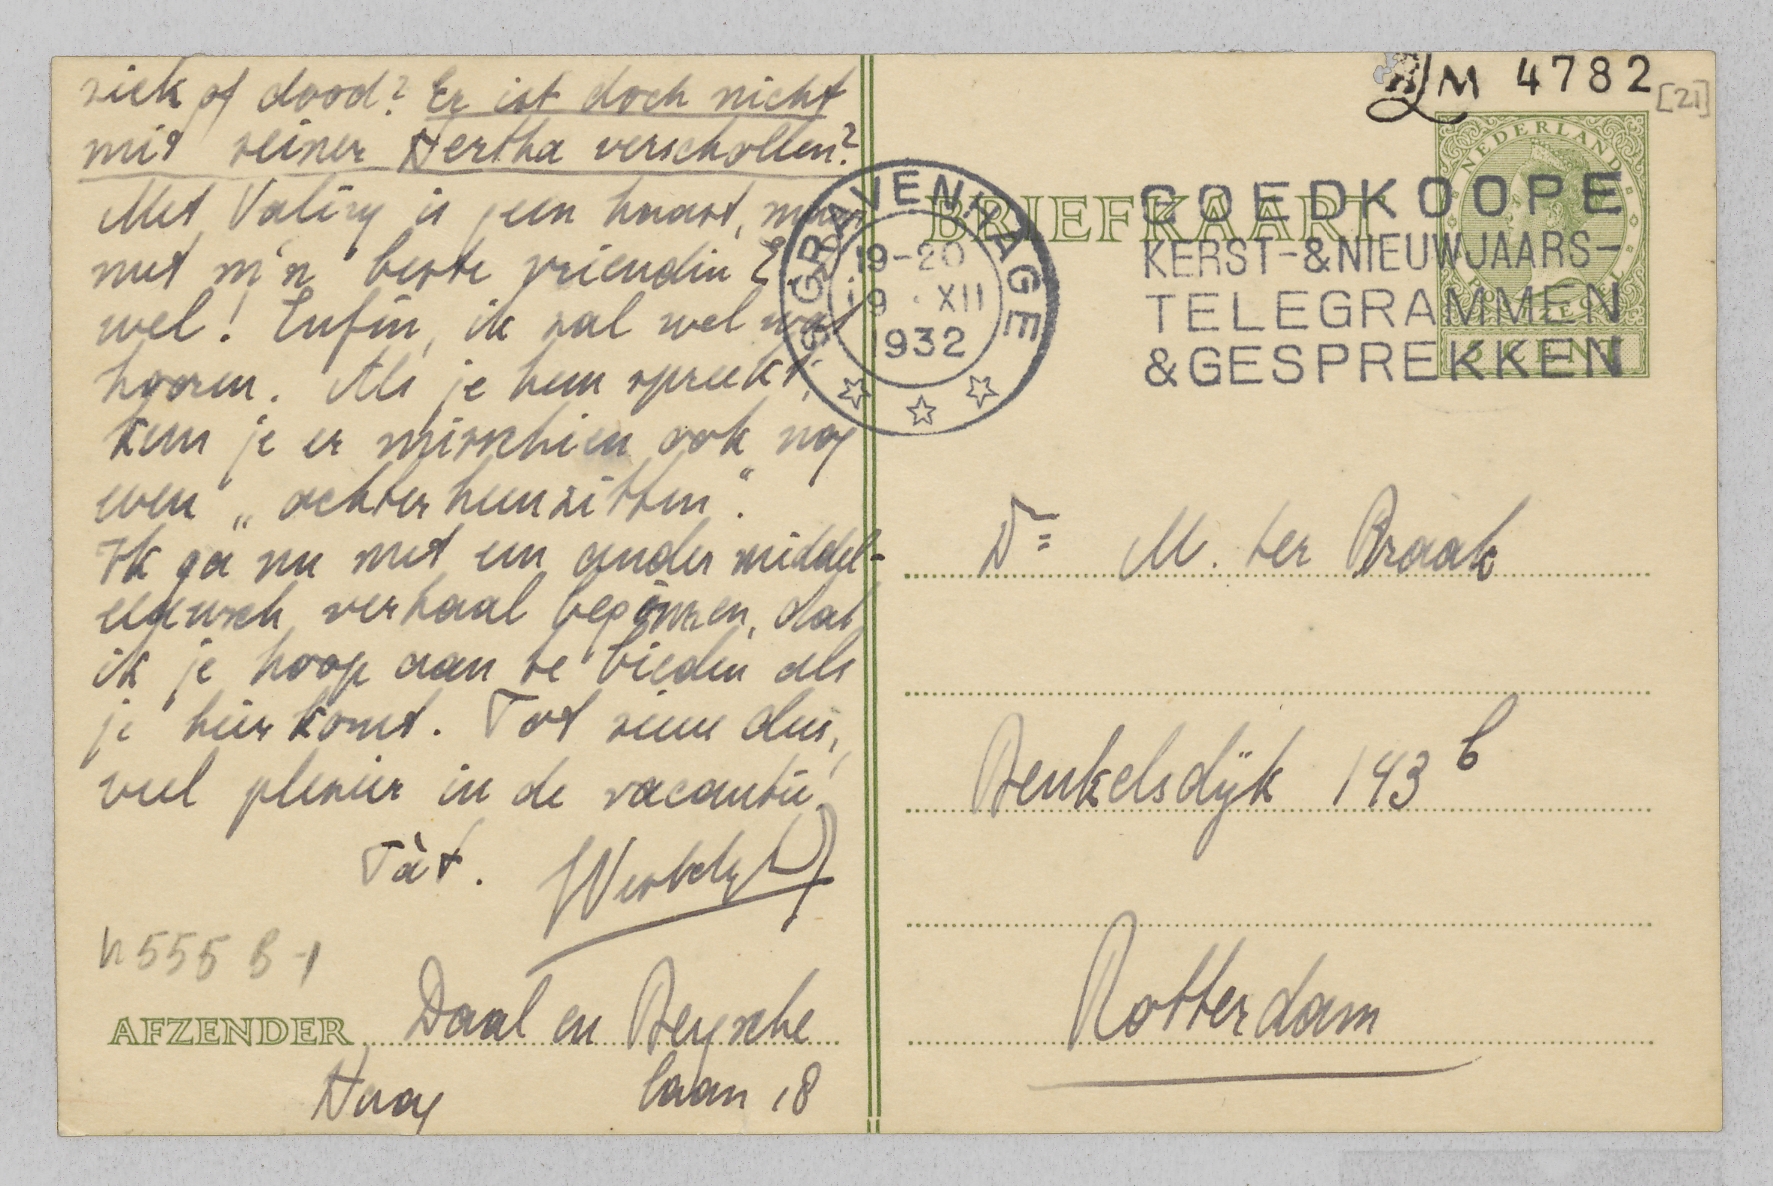 ziek of dood? Er ist doch nicht
mit seiner Hertha verschollen?
Met Valéry is geen haast, maar
met m'n beste vriendin E
wel! Enfin, ik zal wel wat
hooren. Als je hem spreekt,
kun je er misschien ook nog
even „achterheenzitten".
Ik ga nu met een ander middel-
eeuwsch verhaal beginnen, dat
ik je hoop aan te bieden als
je hier komt. Tot ziens dus,
veel plezier in de vacantie,
Tàt.
N 555 B-1
AFZENDER Daal en Bergsche
Haag laan 18
M 4782
[21]
NEDERLAND
BRIEFKAART
CENT
'S GRAVENHAGE
19-20
19 · XII
1932
GOEDKOOPE
KERST-&NIEUWJAARS-
TELEGRAMMEN
&GESPREKKEN
Dr M. ter Braak
Beukelsdijk 143 b
Rotterdam